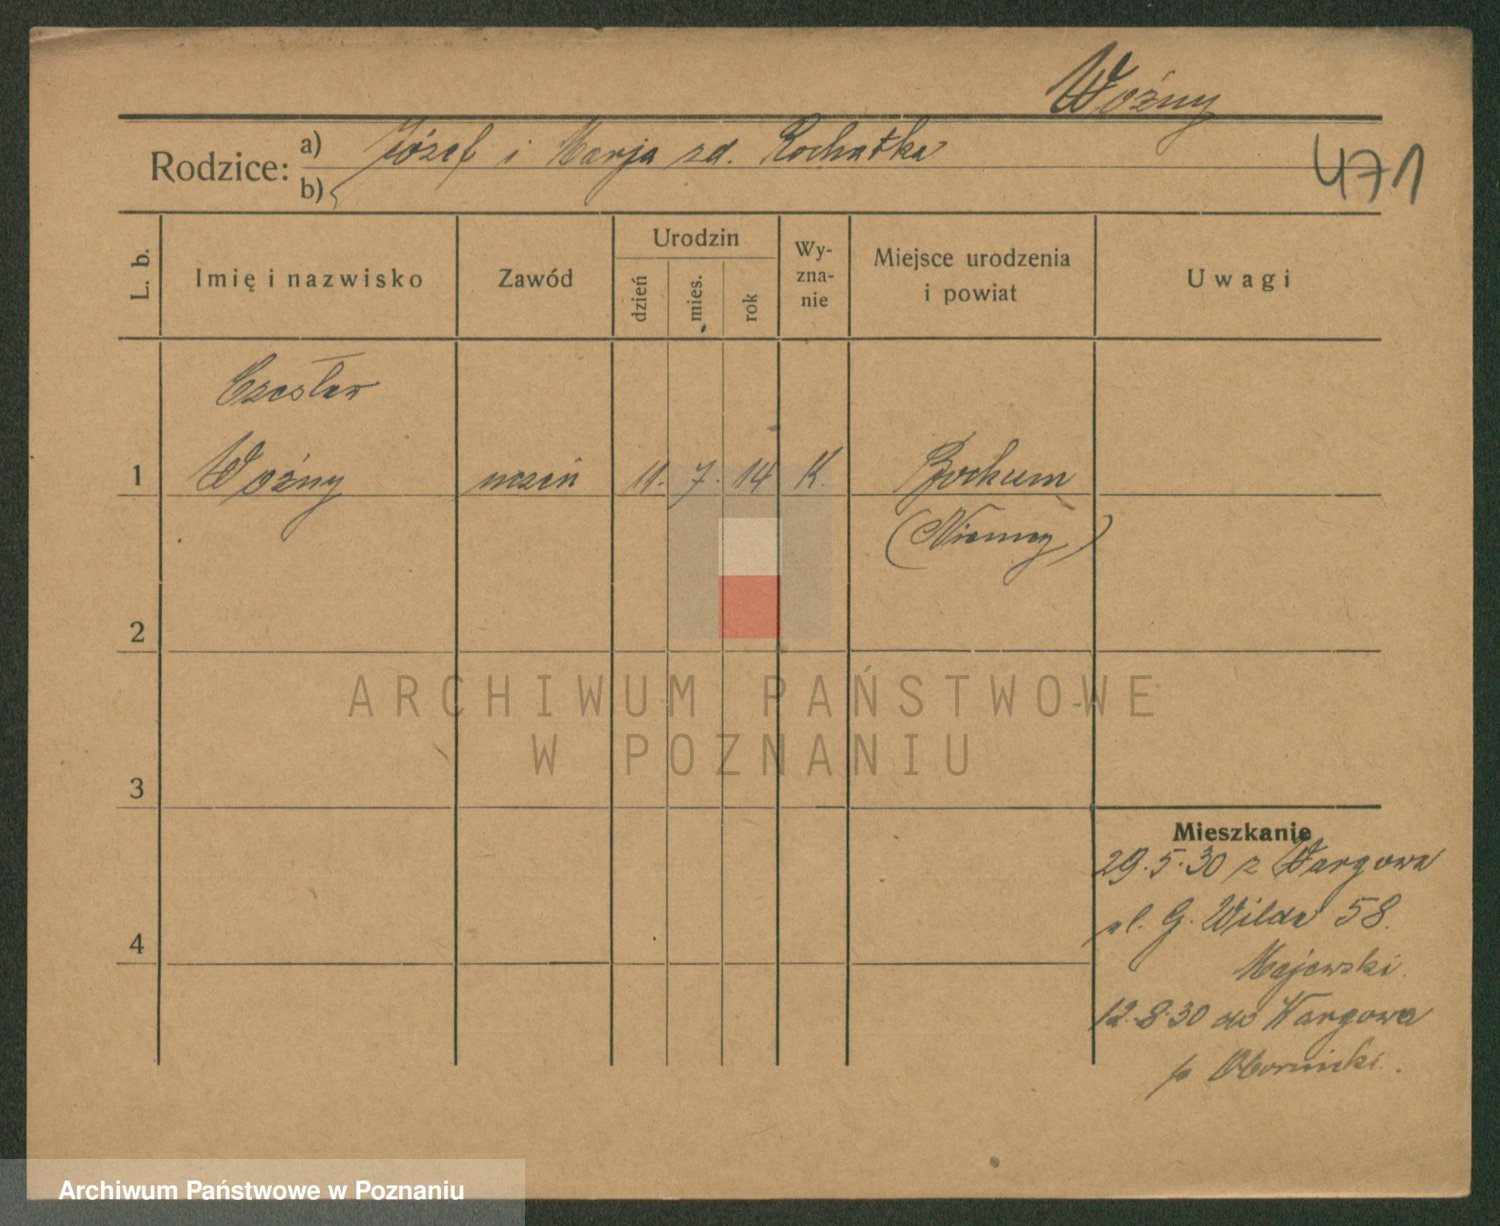 Woźny
471
Rodzice: a) Józef i Marja zd. Rochatka
b)
L. b.
Imię i nazwisko
Zawód
Urodzin
dzień
mies.
rok
Wy-
zna-
nie
Miejsce urodzenia
i powiat
Uwagi
Czesław
1 Woźny uczeń 11. 7. 14 K. Bochum
(Niemcy)
2
3
4
Mieszkanie
29.5.30 z Wargowa
ul. G. Wilda 58.
Majewski.
12.8.30 do Wargowa
p Obornicki.
ARCHIWUM PAŃSTWOWE
W POZNANIU
Archiwum Państwowe w Poznaniu